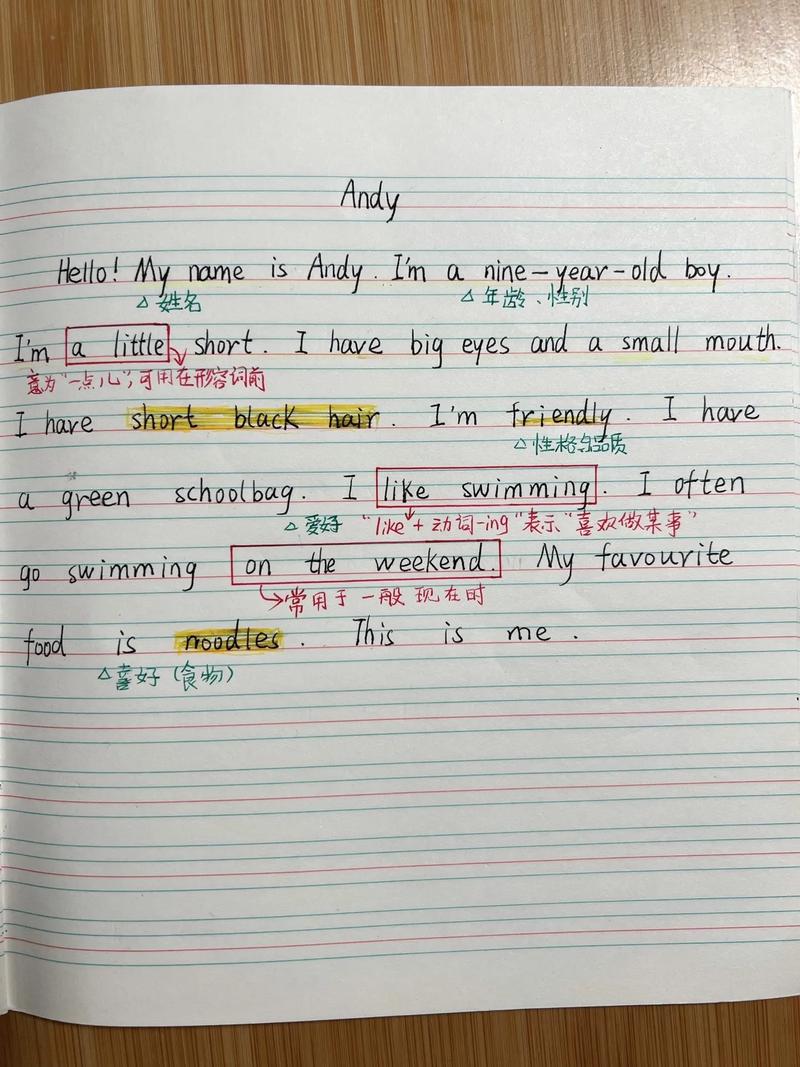 Andy
Hello! My name is Andy. I'm a nine-year-old boy.
△姓名 △年龄、性别
I'm a little short. I have big eyes and a small mouth.
意为"一点儿",可用在形容词前
I have short black hair. I'm friendly. I have
△性格品质
a green schoolbag. I like swimming. I often
△爱好 "like+动词-ing"表示"喜欢做某事"
go swimming on the weekend. My favourite
常用于一般现在时
food is noodles. This is me.
△喜好(食物)